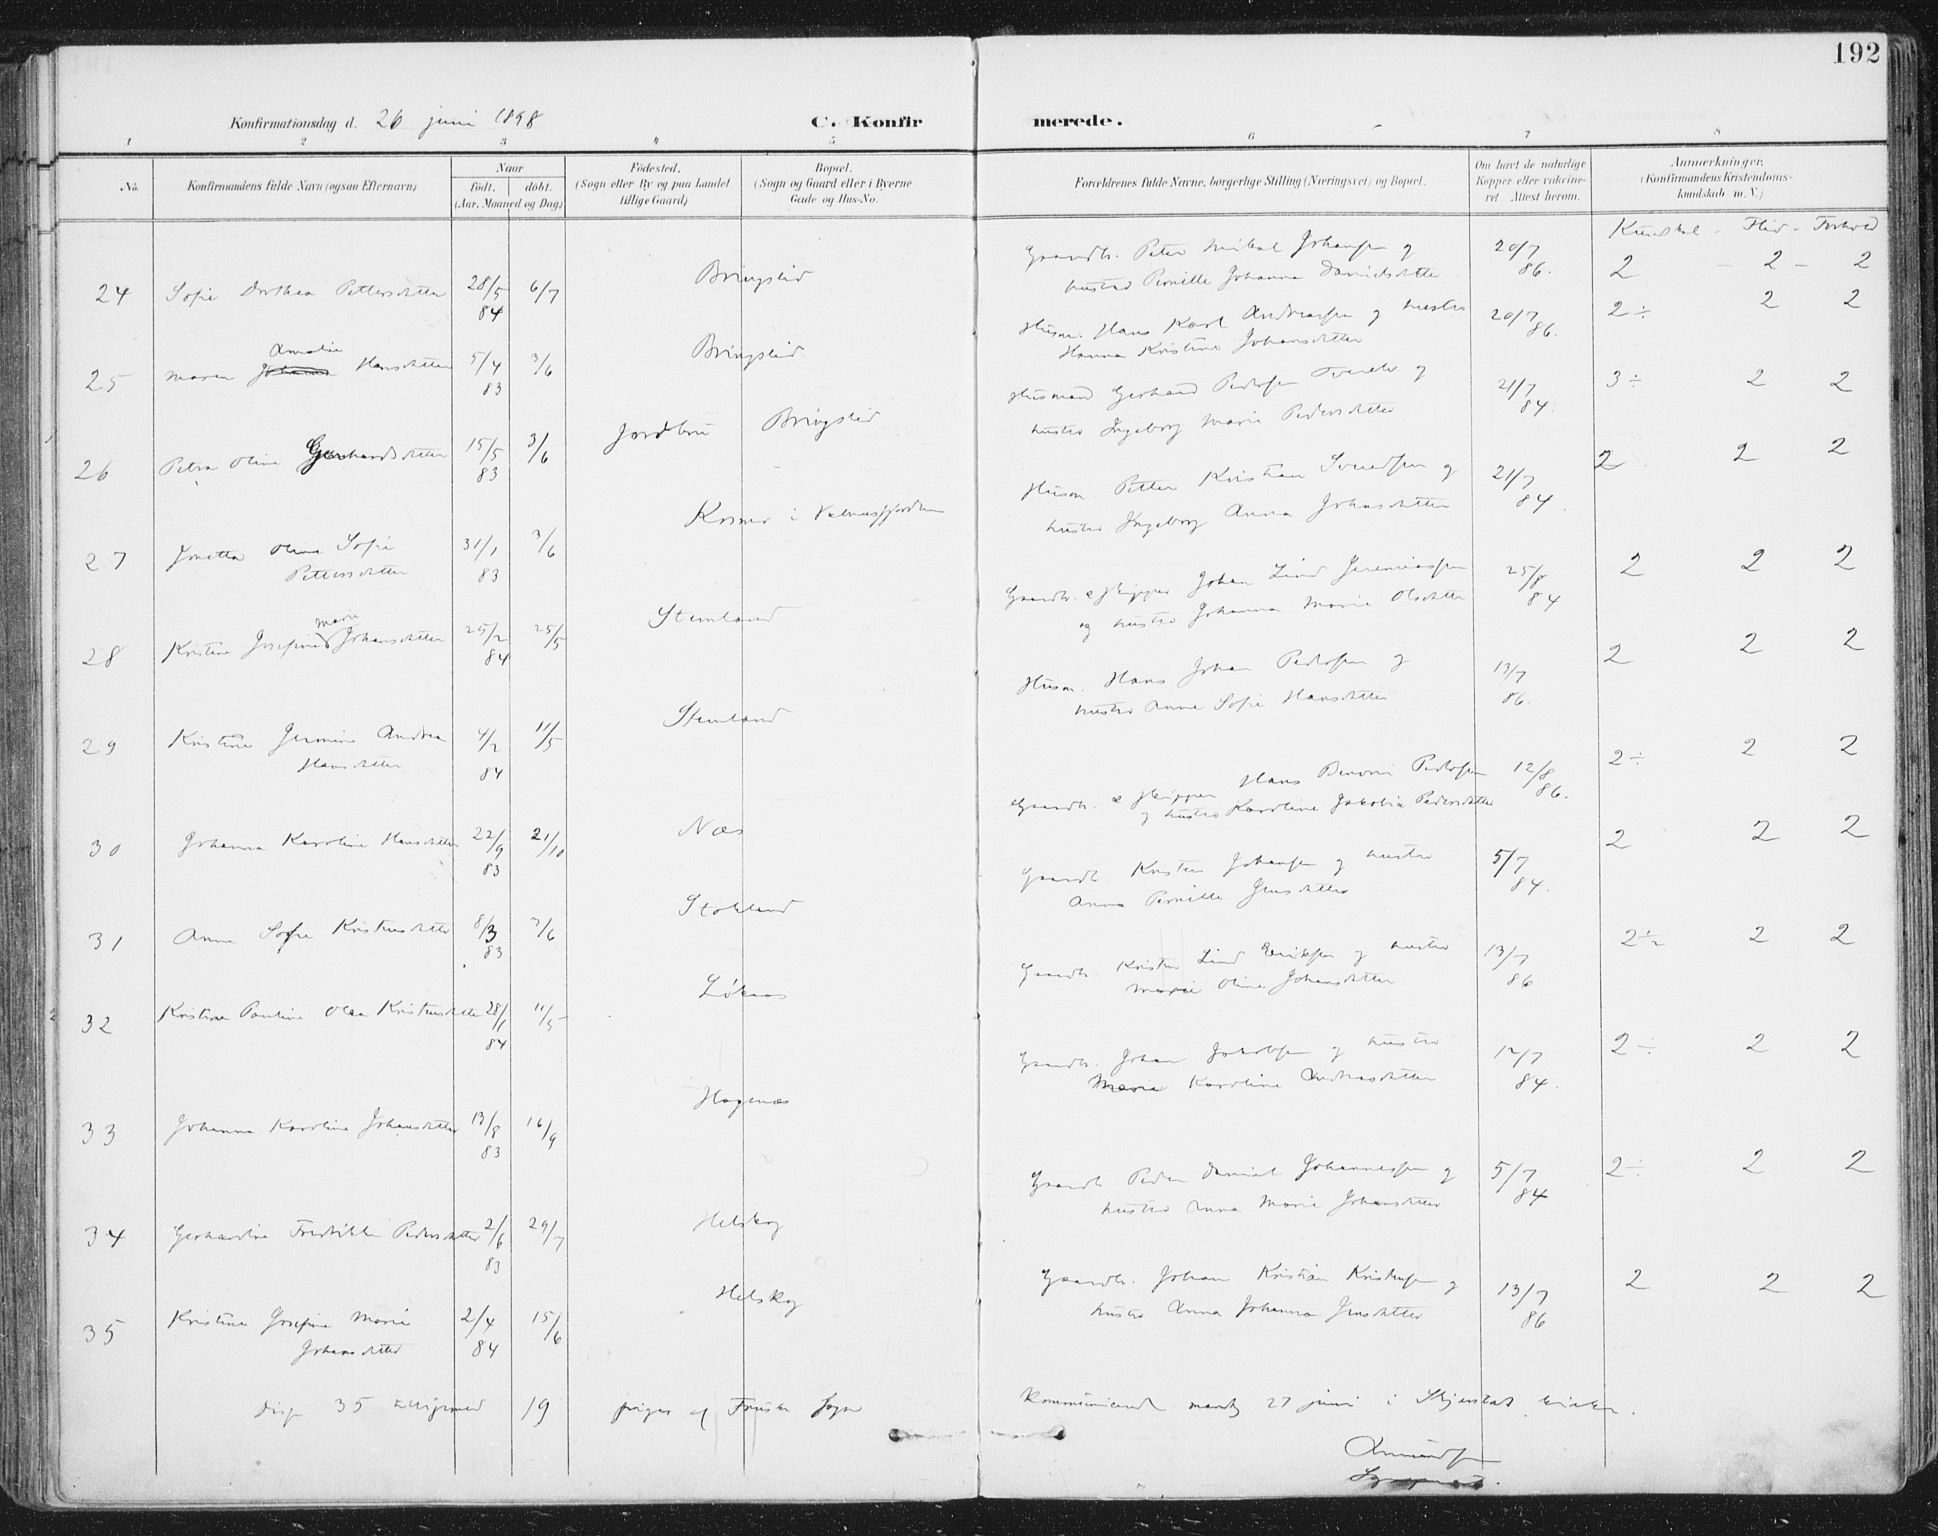 192
Konfirmationsdag d. 26 juni 1898
C. Konfirmerede.
1 2 3 4 5 6 7 8
No.
Konfirmandens fulde Navn (ogsaa Efternavn)
Naar
født. døbt.
(Aar, Maaned og Dag)
Fødested.
(Sogn eller By og paa Landet
tillige Gaard)
Bopæl.
(Sogn og Gaard eller i Byerne
Gade og Hus-No.
Forældrenes fulde Navne, borgerlige Stilling (Næringsvei) og Bopæl.
Om havt de naturlige
Kopper eller vakcine-
ret Attest herom.
Anmærkninger.
(Konfirmandens Kristendoms-
kundskab m. V.)
Kundskab - Flid - Forhold
24 Sofie Dorthea Pettersdatter 28/5 84 6/7 Bringslid
Gaardb. Peter Mikal Johansen og
hustru Pernille Johanna Danielsdatter 20/7 86. 2 - 2 - 2
25 Maren Amalie Hansdatter 5/4 83 3/6 Bringslid
Husm. Hans Karl Andreassen og hustru
Hanna Kristine Johansdatter 20/7 86. 2÷ 2 2
26 Petra Oline Gerhardsdatter 15/5 83 3/6 Jordbru Bringslid
Husmand Gerhard Pedersen Tveraa og
hustru Ingeborg Marie Pedersdatter 21/7 84. 3÷ 2 2
27 Jonetta Oline Sofie
Pettersdatter 31/1 83 3/6 Kosmo i Valnesfjorden
Husm. Petter Kristian Svendsen og
hustru Ingeborg Anna Johnsdatter 21/7 84. 2 2 2
28 Kristine Josefine Marie Johansdatter 25/2 84 25/5 Stemland
Gaardb. & skipper Johan Lind Jeremiassen
og hustru Johanna Marie Olsdatter 25/8 84 2 2 2
29 Kristine Jermine Andrea
Hansdatter 4/2 84 11/5 Stemland
Husm. Hans Johan Pedersen og
hustru Anne Sofie Hansdatter 13/7 86. 2 2 2
30 Johanna Karoline Hansdatter 22/9 83 21/10 Næs
Gaardb. & skipper Hans Benoni Pedersen
og hustru Karoline Jakobia Pedersdatter 12/8 86. 2÷ 2 2
31 Anne Sofie Kristensdatter 8/3 83 3/6 Stokland
Gaardb. Kristen Johansen og hustru
Anna Pernille Jensdatter 5/7 84. 2 2 2
32 Kristine Pauline Olea Kristensdatter 28/1 84 11/5 Løknæs
Gaardb. Kristen Lind Eriksen og hustru
Marie Oline Johansdatter 13/7 86 2÷ 2 2
33 Johanna Karoline Johansdatter 13/8 83 16/9 Hagenæs
Gaardb. Johan Jakobsen og hustru
Marie Karoline Andreasdatter 12/7 84. 2÷ 2 2
34 Gerhardine Fredrikke Pedersdatter 2/6 83 29/7 Helskog
Gaardb. Peder Daniel Johannessen og
hustru Anna Marie Johansdatter 5/7 84 2÷ 2 2
35 Kristine Josefine Marie
Johansdatter 2/4 84 15/6 Helskog
Gaardb. Johan Kristian Kristensen og
hustru Anna Johanna Jensdatter 13/7 86 2 2 2
disse 35 19 piger af Sogn
Kommunicerede mandag 27 juni i Skjerstad kirke.
Amundsen
Sogneprest.